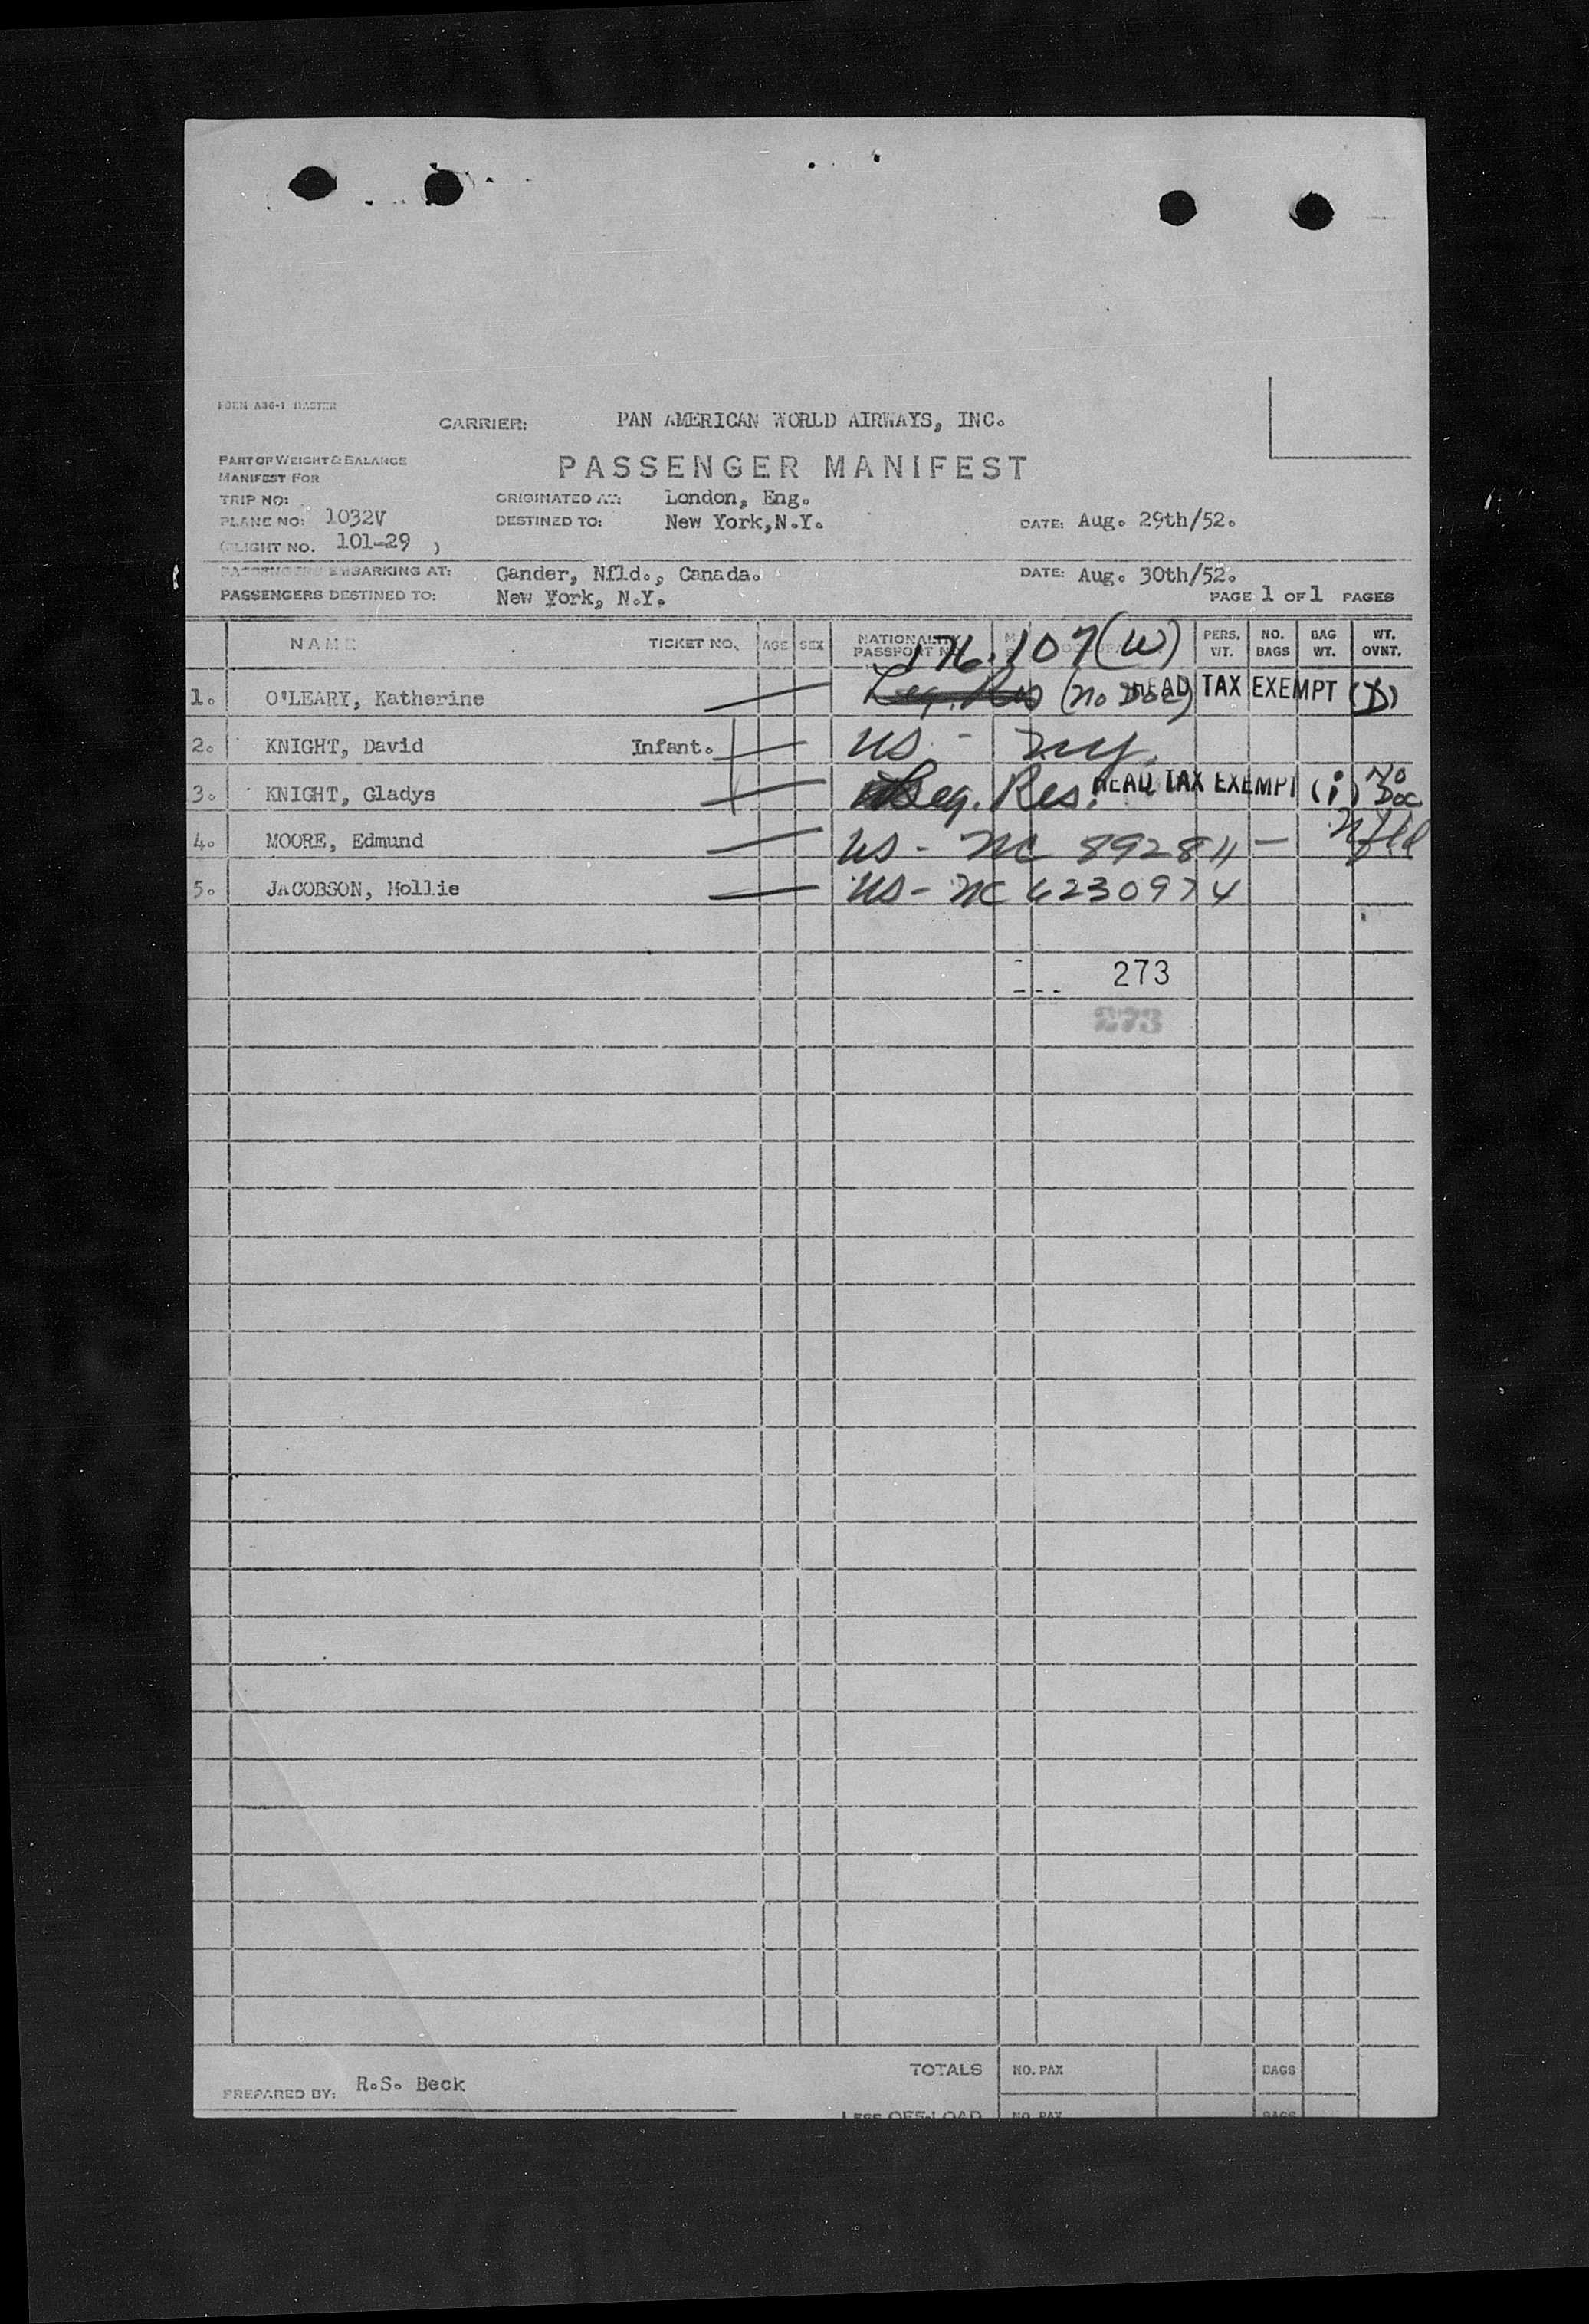 FORM A36-1 MASTER
CARRIER: PAN AMERICAN WORLD AIRWAYS, INC.
PART OF WEIGHT & BALANCE
MANIFEST FOR
PASSENGER MANIFEST
TRIP NO: ORIGINATED AT: London, Eng.
PLANE NO: 1032V DESTINED TO: New York,N.Y. DATE: Aug. 29th/52.
(FLIGHT NO. 101-29 )
PASSENGERS EMBARKING AT: Gander, Nfld., Canada. DATE: Aug. 30th/52.
PASSENGERS DESTINED TO: New York, N.Y. PAGE 1 OF 1 PAGES
NAME TICKET NO. AGE SEX NATIONALITY PASSPORT NO. 176.107(W) PERS. WT. NO. BAGS BAG WT. WT. OVNT.
1. O'LEARY, Katherine Leg. Res (no Doc) HEAD TAX EXEMPT
2. KNIGHT, David Infant. US - NY
3. KNIGHT, Gladys Leg. Res. HEAD TAX EXEMPT (i) No Doc
4. MOORE, Edmund US - NC 892811 - Nfld
5. JACOBSON, Mollie US - NC 6230974
273
273
PREPARED BY: R.S. Beck TOTALS NO. PAX BAGS
LESS OFF-LOAD NO. PAX BAGS